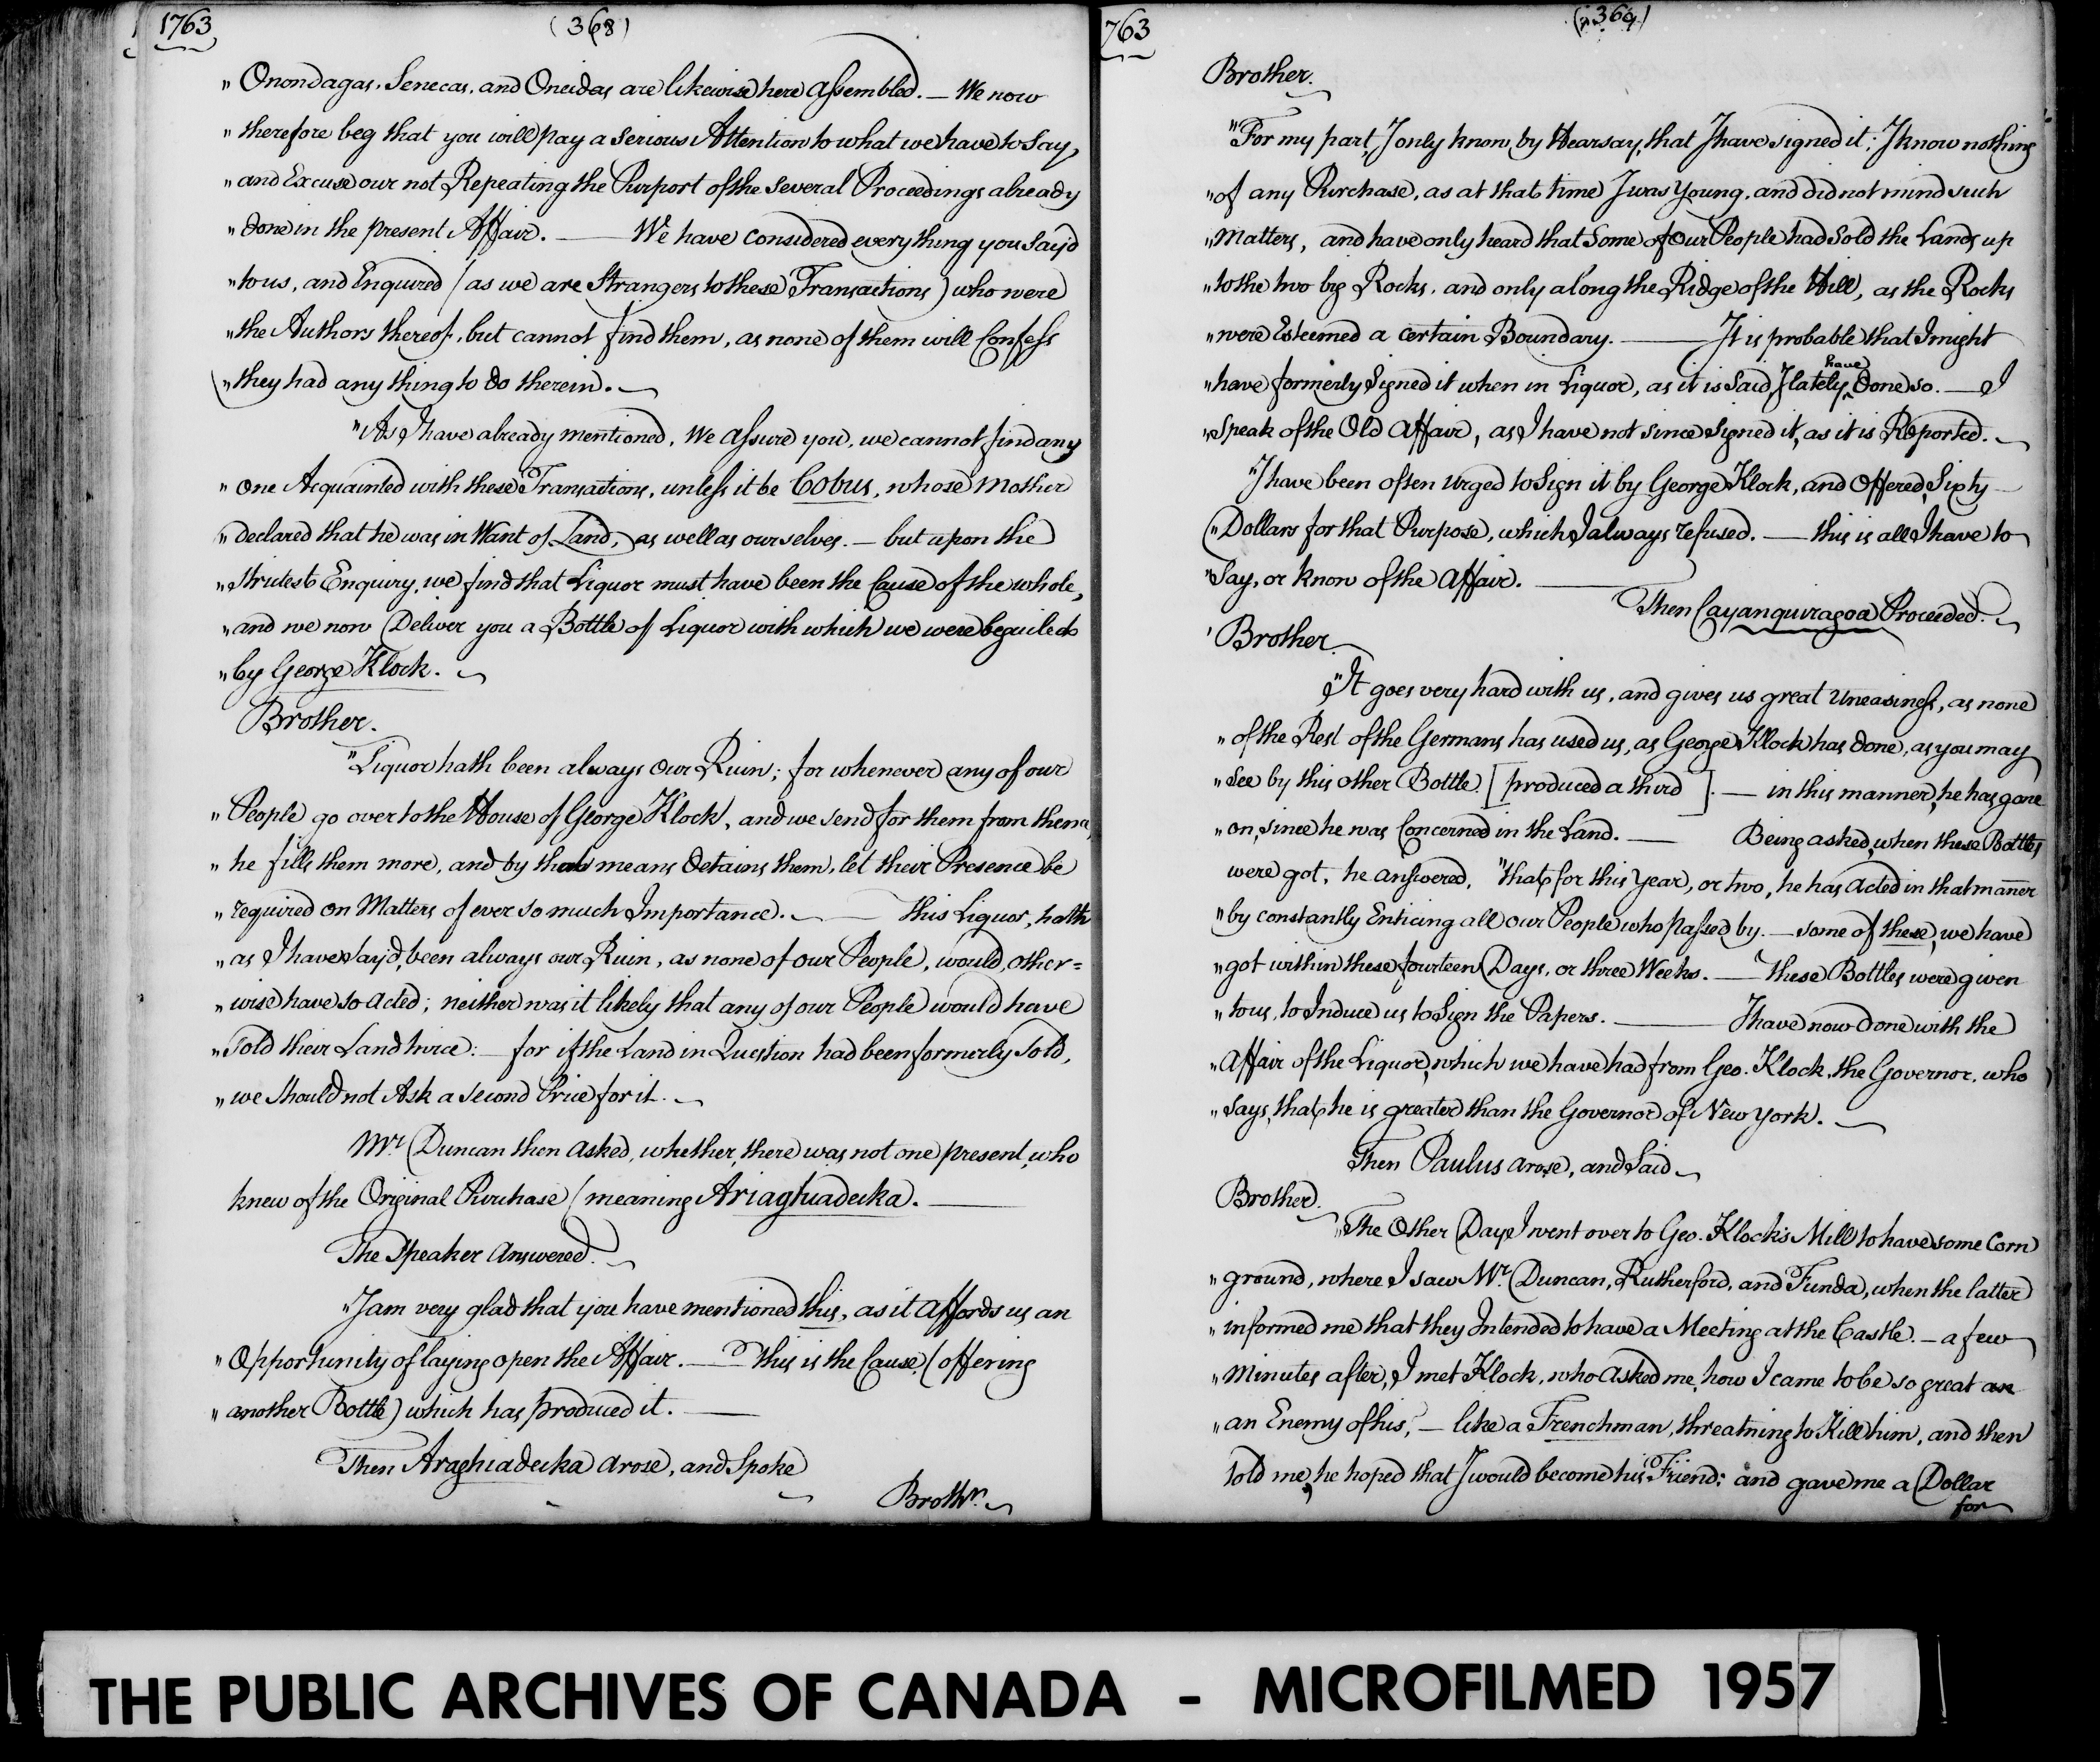 1763
(368)
" Onondagas, Senecas, and Oneidas are likewise here assembled. — We now
" therefore beg that you will pay a serious Attention to what we have to Say,
" and Excuse our not Repeating the Purport of the several Proceedings already
" done in the present Affair. — We have considered every thing you say'd
" to us, and Enquired (as we are Strangers to these Transactions) who were
" the Authors thereof, but cannot find them, as none of them will Confess
" they had any thing to do therein. —
" As I have already mentioned, We assure you, we cannot find any
" one Acquainted with these Transactions, unless it be Cobus, whose Mother
" declared that he was in Want of Land, as well as ourselves. — but upon the
" strictest Enquiry, we find that Liquor must have been the Cause of the whole,
" and we now Deliver you a Bottle of Liquor with which we were beguiled
" by George Klock. —
Brother.
" Liquor hath been always Our Ruin; for whenever any of our
" People go over to the House of George Klock, and we send for them from thence,
" he fills them more, and by that means detains them, let their Presence be
" required on Matters of ever so much Importance. — this Liquor, hath
" as I have say'd, been always our Ruin, as none of our People, would, other=
" wise have so acted; neither was it likely that any of our People would have
" sold their Land twice: — for if the Land in Question had been formerly Sold,
" we should not Ask a second Price for it. —
Mr. Duncan then asked, whether there was not one present, who
knew of the Original Purchase (meaning Ariaghiadecka. —
The Speaker Answered. —
" I am very glad that you have mentioned this, as it affords us an
" Opportunity of laying open the Affair. — this is the Cause, (offering
" another Bottle) which has produced it. —
Then Araghiadecka arose, and Spoke
Brothr. —
763
(369)
Brother.
" For my part, I only know by Hearsay, that I have signed it; I know nothing
" of any Purchase, as at that time I was Young, and did not mind such
" Matters, and have only heard that Some of Our People had Sold the Lands up
" to the two big Rocks, and only along the Ridge of the Hill, as the Rocks
" were Esteemed a certain Boundary. — It is probable that I might
" have formerly Signed it when in Liquor, as it is Said, I lately have done so. — I
" speak of the Old affair, as I have not since Signed it, as it is Reported. —
" I have been often urged to Sign it by George Klock, and Offered Sixty
" Dollars for that Purpose, which I always refused. — this is all I have to
" Say, or know of the Affair. —
Then Cayanquiragoa Proceeded. —
Brother
" It goes very hard with us, and gives us great Uneasiness, as none
" of the Rest of the Germans has used us, as George Klock has done, as you may
" see by this other Bottle. [produced a third]. — in this manner, he has gone
" on, since he was Concerned in the Land. — Being asked, when these Bottles
were got, he answered, "that for this Year, or two, he has acted in that manner
" by constantly Enticing all our People who passed by. — some of these, we have
" got within these fourteen Days, or three Weeks. — these Bottles were given
" to us, to Induce us to Sign the Papers. — I have now done with the
" Affair of the Liquor, which we have had from Geo. Klock, the Governor, who
" says, that he is greater than the Governor of New York. —
Then Paulus arose, and Said —
Brother.
" The Other Day I went over to Geo. Klock's Mill to have some Corn
" ground, where I saw Mr. Duncan, Rutherford, and Funda, when the latter
" informed me that they Intended to have a Meeting at the Castle. — a few
" Minutes after, I met Klock, who asked me, how I came to be so great an
" an Enemy of his, — like a Frenchman, threatning to Kill him, and then
told me, he hoped that I would become his Friend; and gave me a Dollar
for
THE PUBLIC ARCHIVES OF CANADA - MICROFILMED 1957